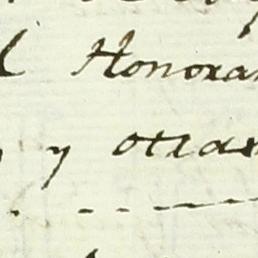 Honora
y otras